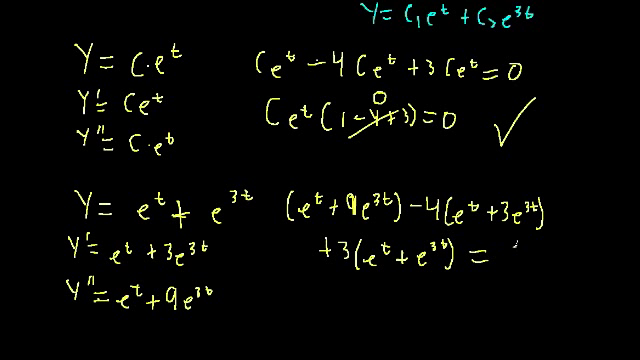 Y = C₁eᵗ + C₂e³ᵗ
Y = C·eᵗ
Y' = Ceᵗ
Y'' = C·eᵗ
Ceᵗ - 4Ceᵗ + 3Ceᵗ = 0
0
Ceᵗ(1-4+3) = 0 ✓
Y = eᵗ + e³ᵗ
Y' = eᵗ + 3e³ᵗ
Y'' = eᵗ + 9e³ᵗ
(eᵗ + 9e³ᵗ) - 4(eᵗ + 3e³ᵗ)
+3(eᵗ + e³ᵗ) =